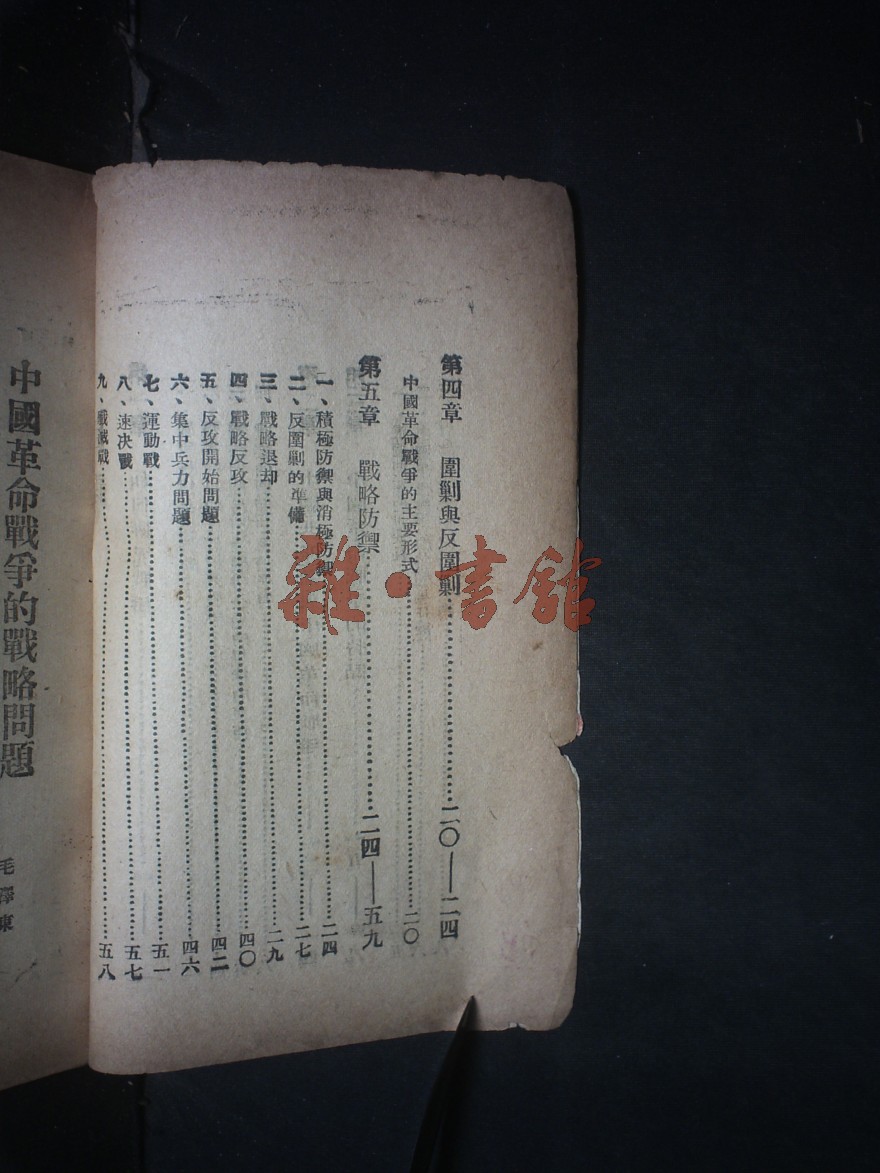 第四章 圍剿與反圍剿……二〇—二四
中國革命戰爭的主要形式……二〇
第五章 戰略防禦……二四—五九
一、積極防禦與消極防禦……二四
二、反圍剿的準備……二七
三、戰略退却……二九
四、戰略反攻……四〇
五、反攻開始問題……四二
六、集中兵力問題……四六
七、運動戰……五一
八、速决戰……五七
九、殲滅戰……五八
中國革命戰爭的戰略問題
毛澤東
雜·書館